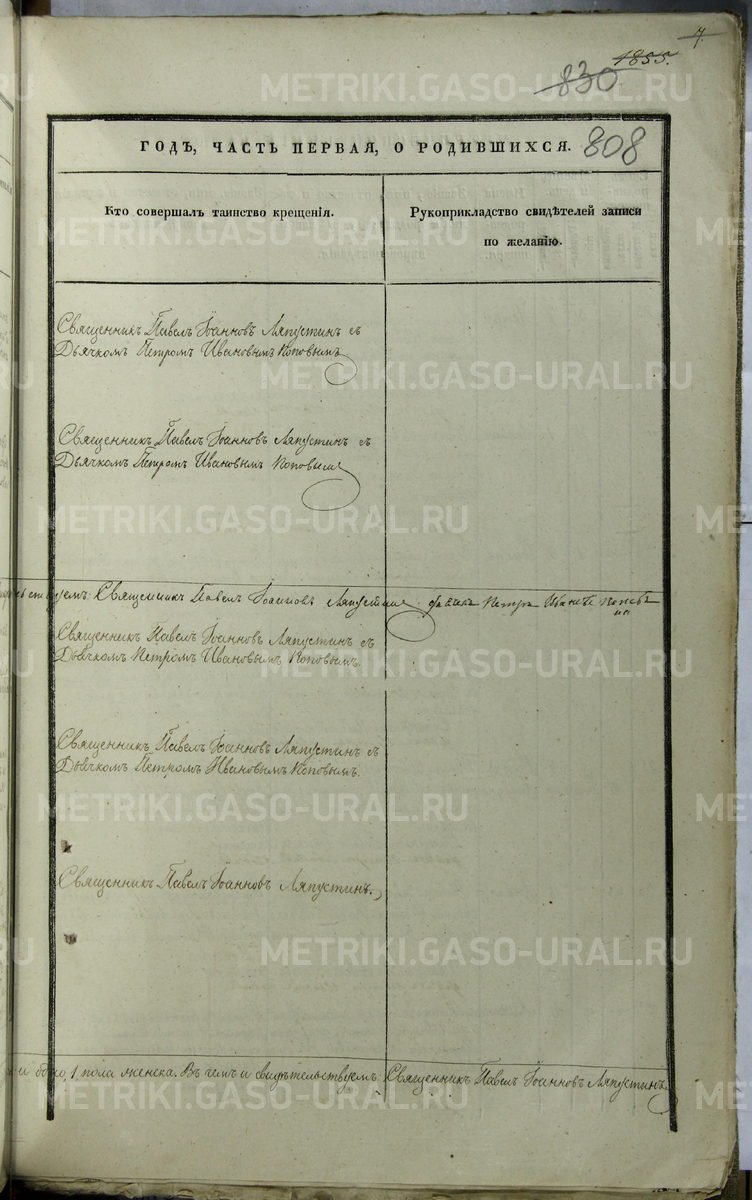 7.
1855.
830
808
ГОДЪ, ЧАСТЬ ПЕРВАЯ, О РОДИВШИХСЯ.
Кто совершалъ таинство крещенія.
Рукоприкладство свидѣтелей записи
по желанію.
Священникъ Павелъ Іоанновъ Ляпустинъ съ
Дьячкомъ Петромъ Ивановымъ Поповымъ
Священникъ Павелъ Іоанновъ Ляпустинъ съ
Дьячкомъ Петромъ Ивановымъ Поповым
Священникъ Павелъ Іоанновъ Ляпустин Петръ
Священникъ Павелъ Іоанновъ Ляпустинъ съ
Дьячкомъ Петромъ Ивановымъ Поповымъ.
Священникъ Павелъ Іоанновъ Ляпустинъ съ
Дьячкомъ Петромъ Ивановымъ Поповымъ.
Священникъ Павелъ Іоанновъ Ляпустинъ.
1, пола женска. Въ чемъ и свидѣтельствуемъ Священникъ Павелъ Іоанновъ Ляпустинъ
METRIKI.GASO-URAL.RU